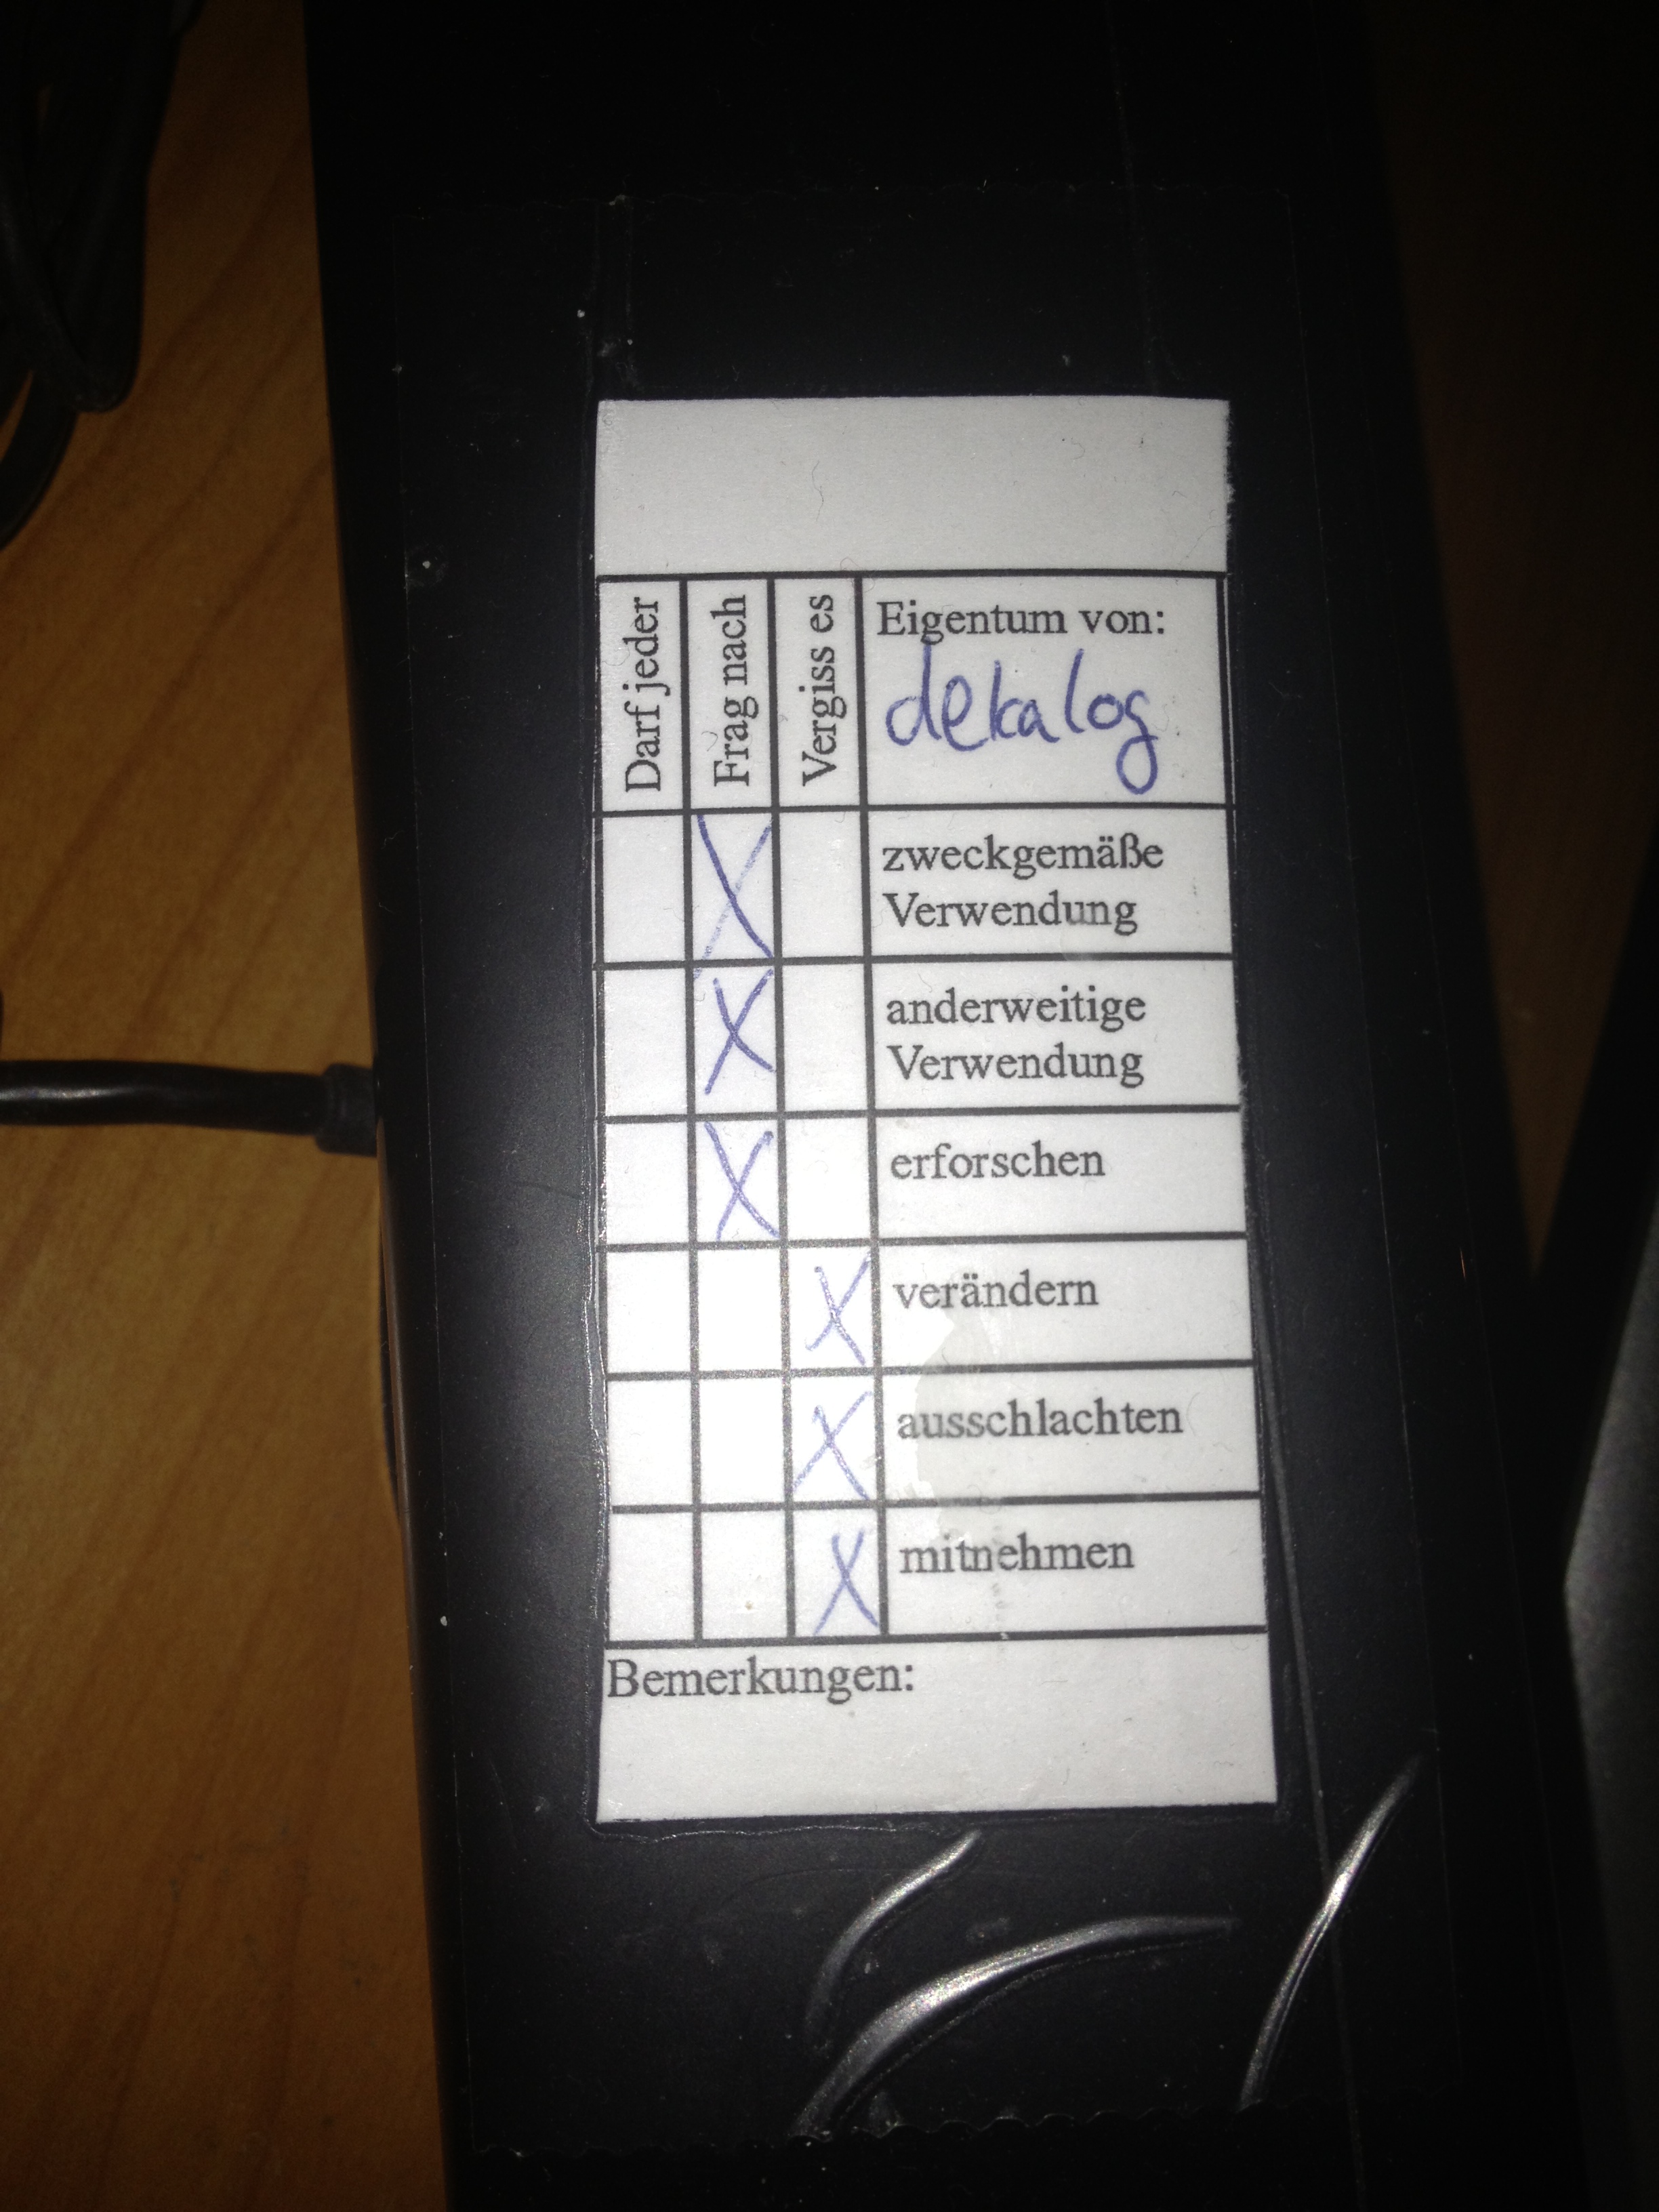 Darf jeder
Frag nach
Vergiss es
Eigentum von:
dekalog
X
zweckgemäße
Verwendung
X
anderweitige
Verwendung
X
erforschen
X
verändern
X
ausschlachten
X
mitnehmen
Bemerkungen: